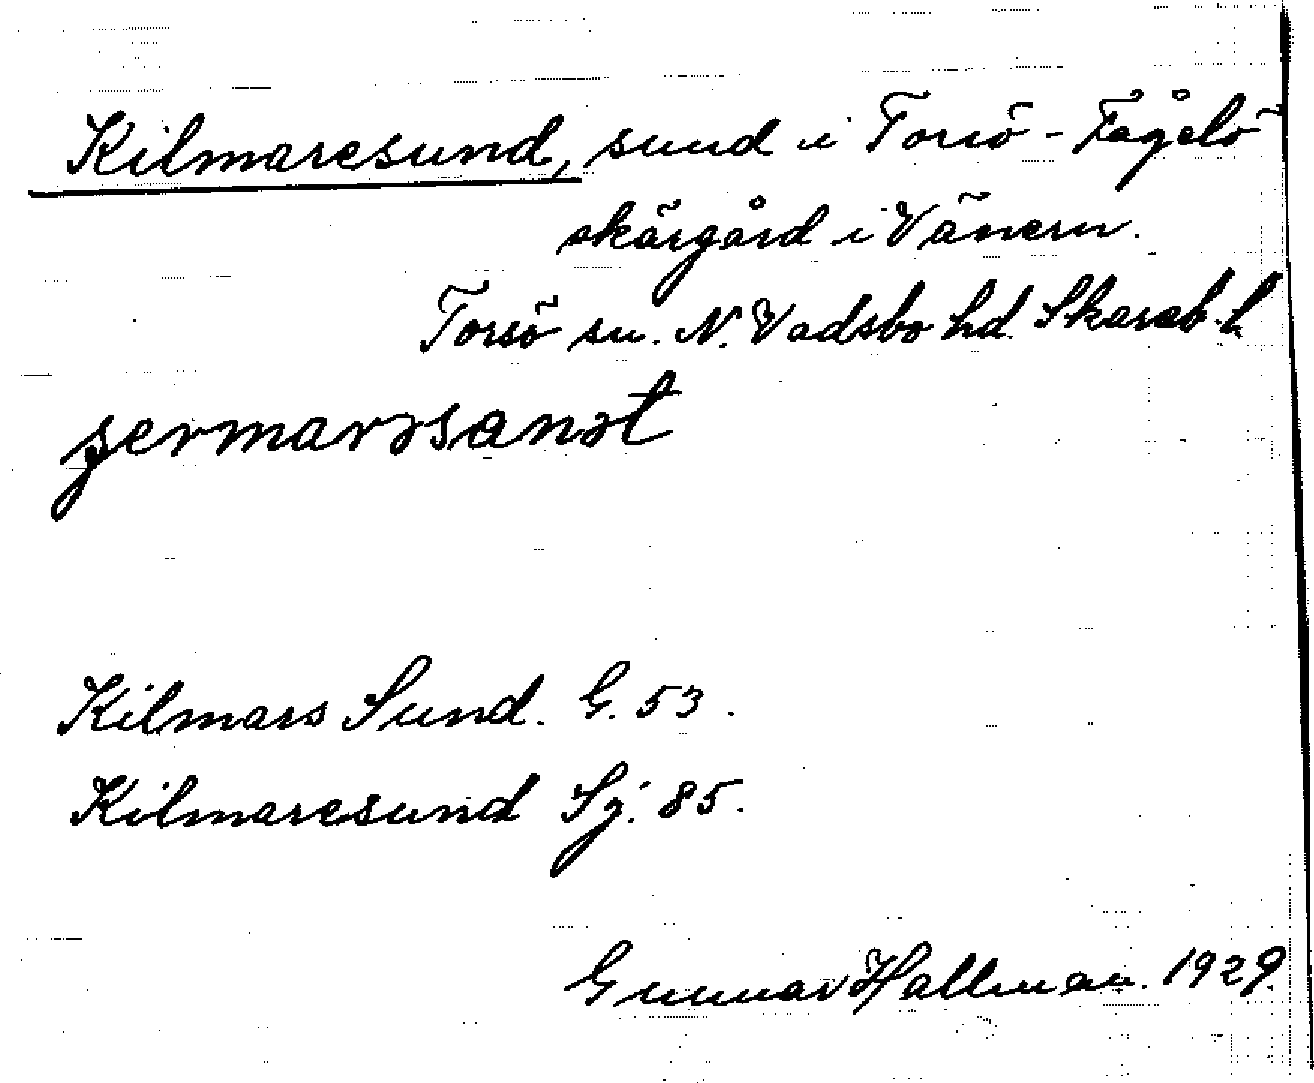 Kilmaresund, sund i Torsö - Fågelö
skärgård i Vänern.
Torsö sn. N. Vadsbo hd. Skarab. l.
Kilmars Sund. G. 53.
Kilmaresund Sj. 85.
Gunnar Hallman. 1929.